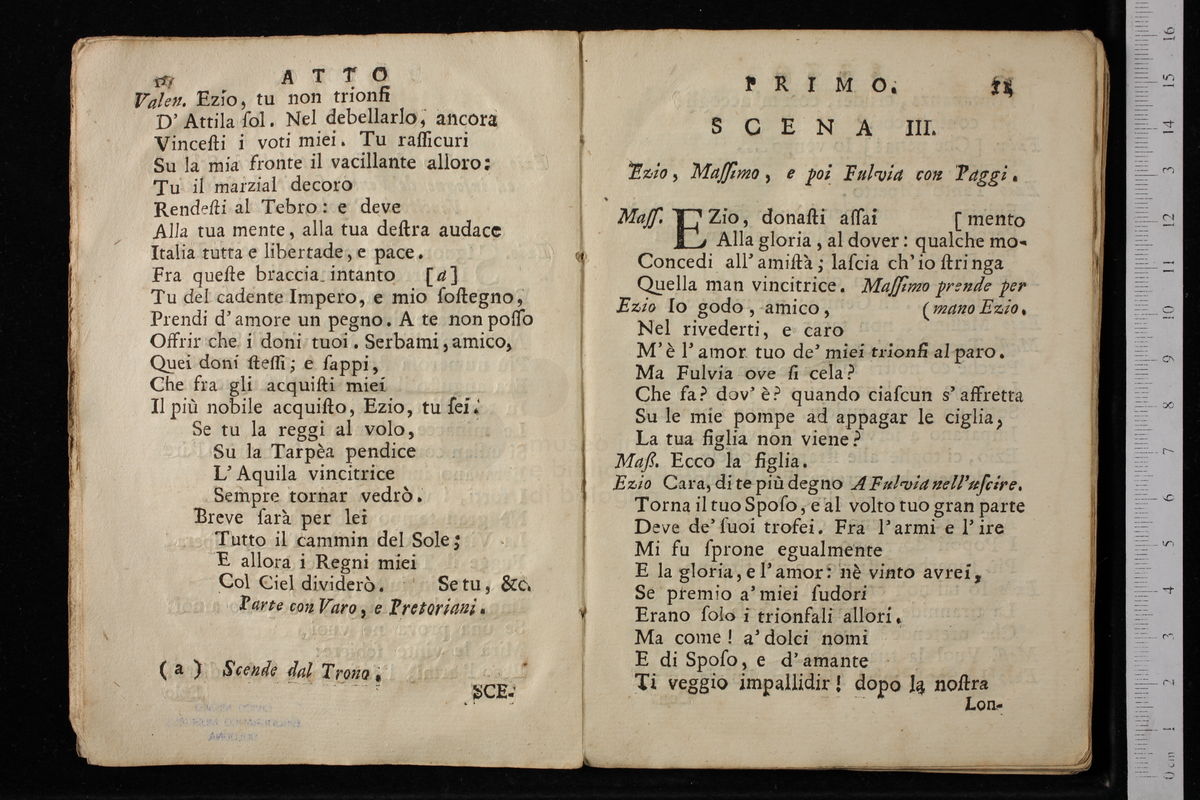 ATTO
Valen. Ezio, tu non trionfi
D' Attila ſol. Nel debellarlo, ancora
Vinceſti i voti miei. Tu raſſicuri
Su la mia fronte il vacillante alloro:
Tu il marzial decoro
Rendeſti al Tebro: e deve
Alla tua mente, alla tua deſtra audace
Italia tutta e libertade, e pace.
Fra queſte braccia intanto [a]
Tu del cadente Impero, e mio ſoſtegno,
Prendi d'amore un pegno. A te non poſſo
Offrir che i doni tuoi. Serbami, amico,
Quei doni ſteſſi; e ſappi,
Che fra gli acquiſti miei
Il più nobile acquiſto, Ezio, tu ſei.
Se tu la reggi al volo,
Su la Tarpèa pendice
L'Aquila vincitrice
Sempre tornar vedrò.
Breve ſarà per lei
Tutto il cammin del Sole;
E allora i Regni miei
Col Ciel dividerò. Se tu, &c.
Parte con Varo, e Pretoriani.
(a) Scende dal Trono.
SCE-
PRIMO.
SCENA III.
Ezio, Maſſimo, e poi Fulvia con Paggi.
Maſſ. EZio, donaſti aſſai [mento
Alla gloria, al dover: qualche mo-
Concedi all' amiſtà; laſcia ch'io ſtringa
Quella man vincitrice. Maſſimo prende per
Ezio Io godo, amico, (mano Ezio.
Nel rivederti, e caro
M'è l'amor tuo de' miei trionfi al paro.
Ma Fulvia ove ſi cela?
Che fa? dov'è? quando ciaſcun s'affretta
Su le mie pompe ad appagar le ciglia,
La tua figlia non viene?
Maß. Ecco la figlia.
Ezio Cara, di te più degno A Fulvia nell'uſcire.
Torna il tuo Spoſo, e al volto tuo gran parte
Deve de' ſuoi trofei. Fra l'armi e l'ire
Mi fu ſprone egualmente
E la gloria, e l'amor: nè vinto avrei,
Se premio a' miei ſudori
Erano ſolo i trionfali allori.
Ma come! a' dolci nomi
E di Spoſo, e d'amante
Ti veggio impallidir! dopo la noſtra
Lon-